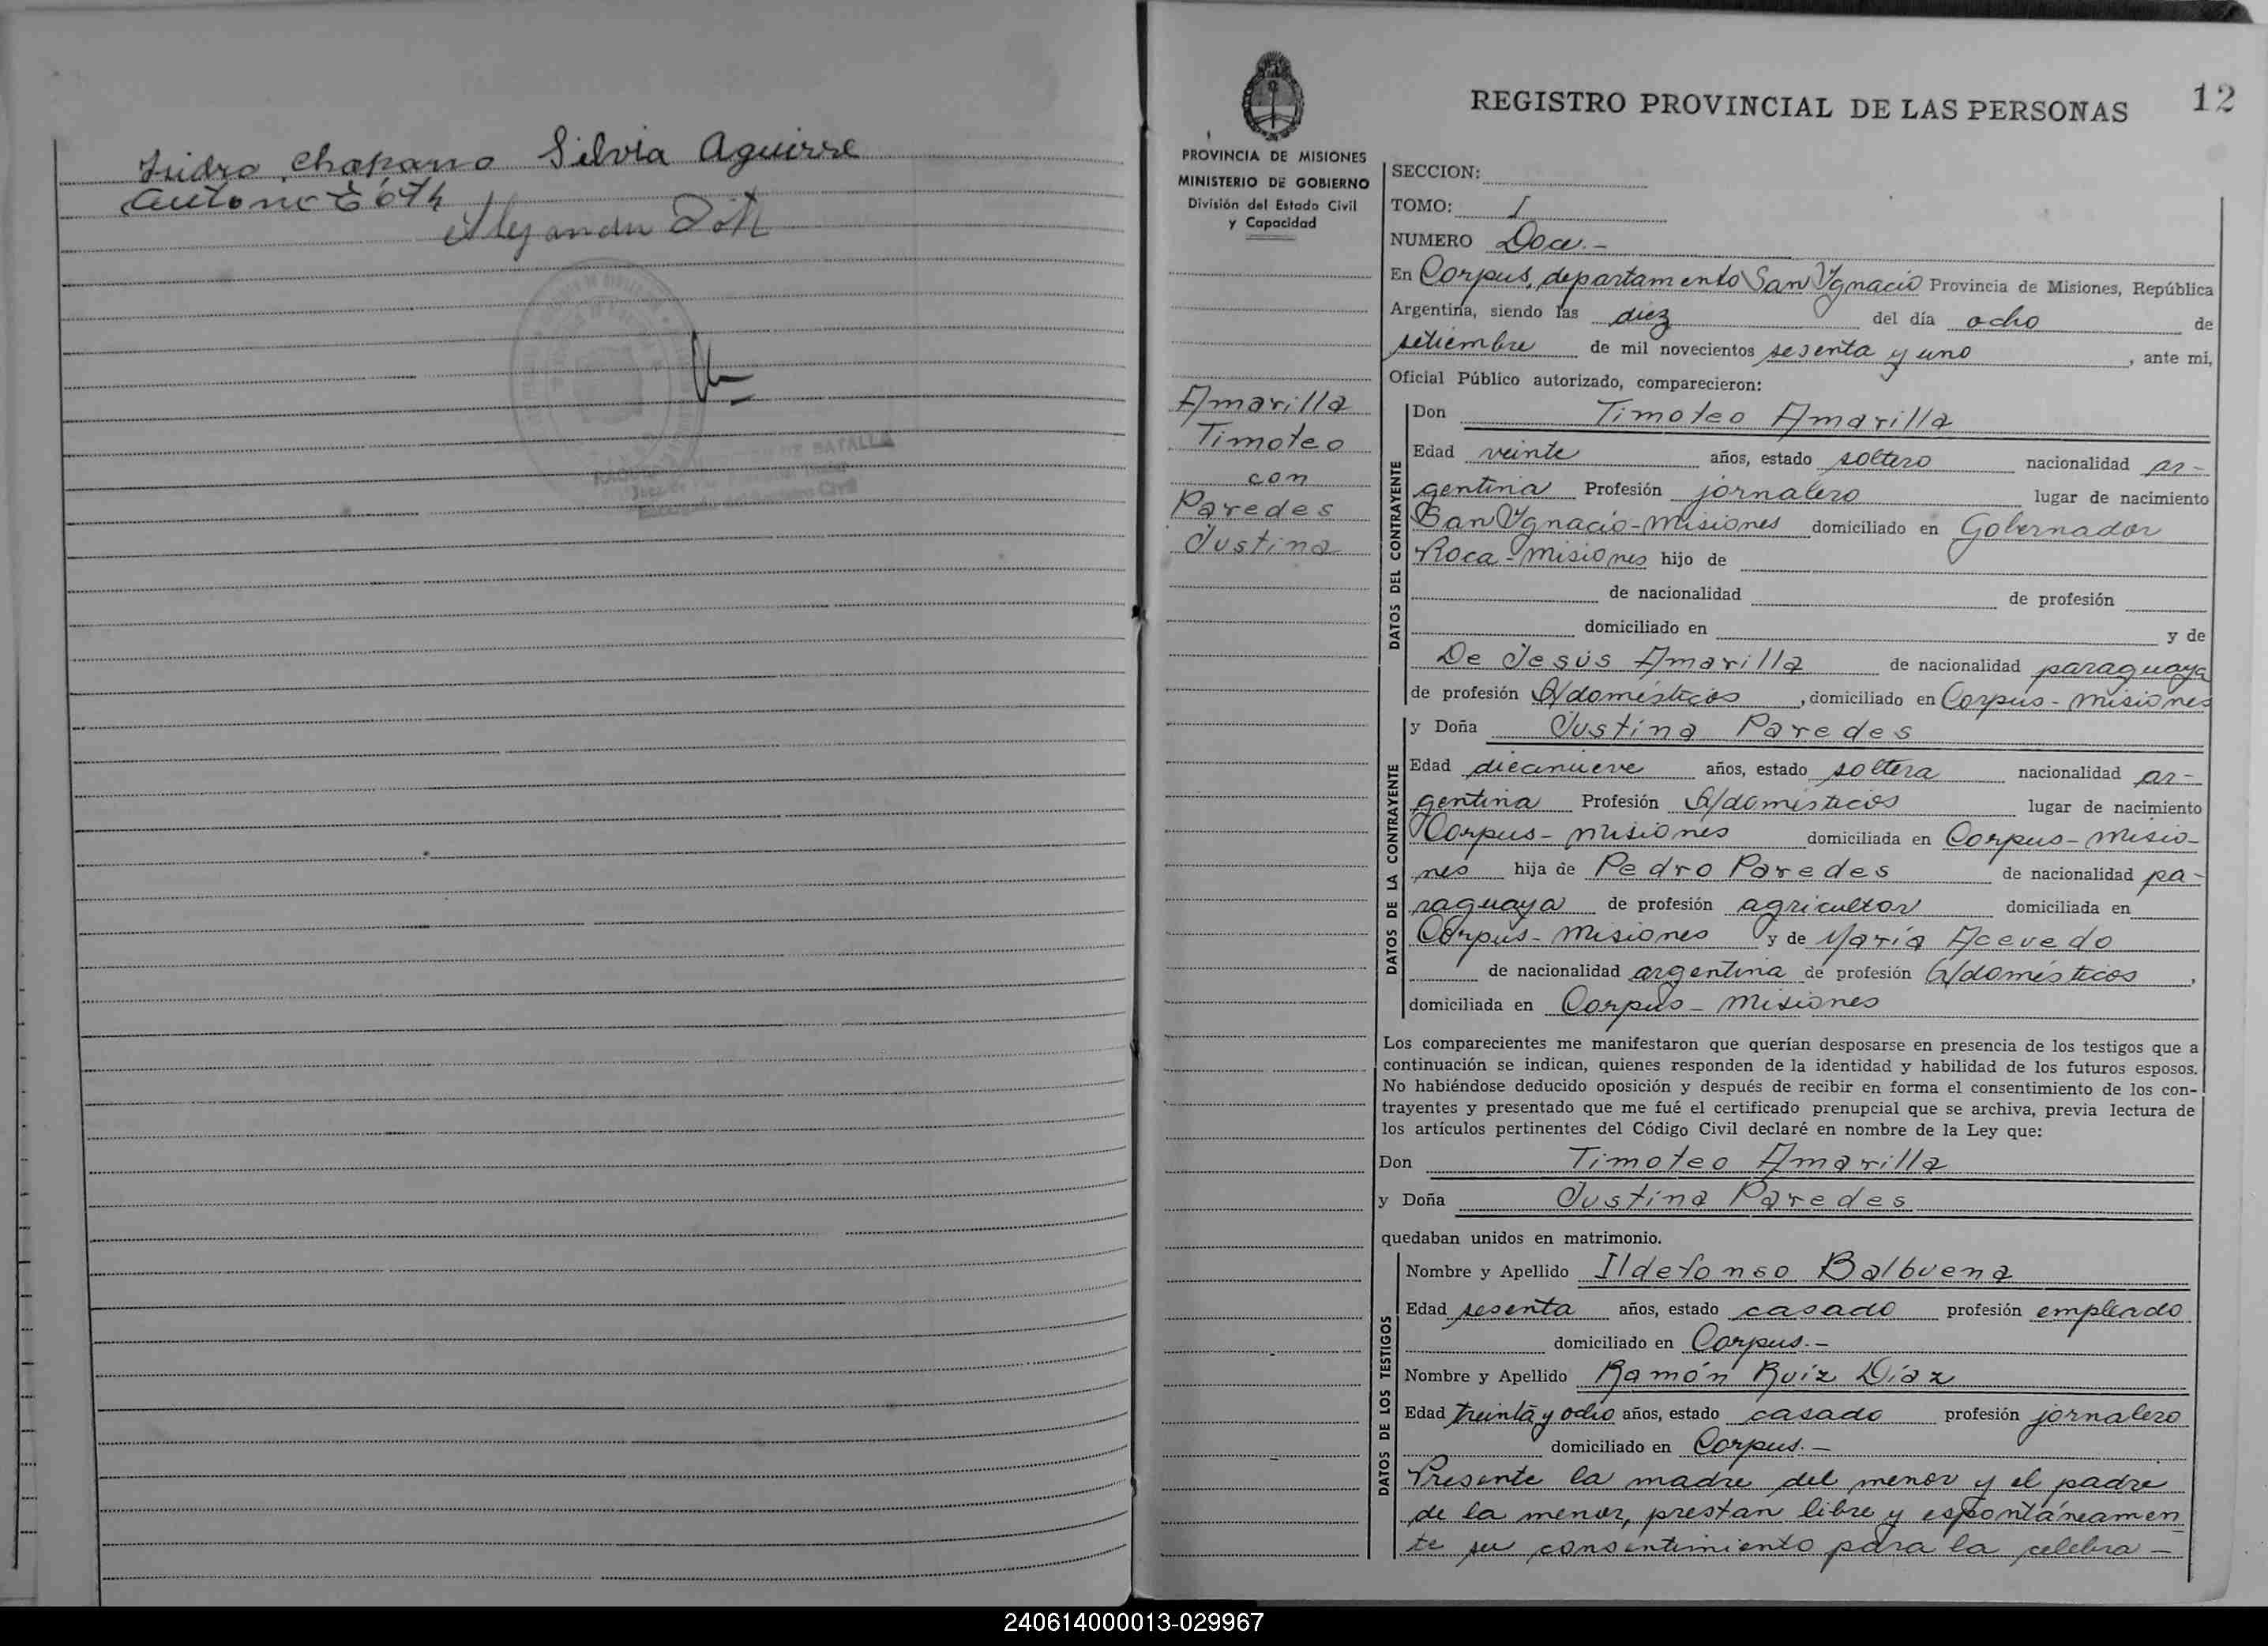 Isidro Chaparro Silvia Aguirre
Antonio Tóth
Alejandro Tóth
DE BATALLA
12
REGISTRO PROVINCIAL DE LAS PERSONAS
PROVINCIA DE MISIONES
MINISTERIO DE GOBIERNO
División del Estado Civil
y Capacidad
Amarilla
Timoteo
con
Paredes
Justina
SECCION:
TOMO: I
NUMERO Doce.-
En Corpus, departamento San Ygnacio Provincia de Misiones, República
Argentina, siendo las diez del día ocho de
setiembre de mil novecientos sesenta y uno, ante mi,
Oficial Público autorizado, comparecieron:
DATOS DEL CONTRAYENTE
Don Timoteo Amarilla
Edad veinte años, estado soltero nacionalidad ar-
gentina Profesión jornalero lugar de nacimiento
San Ygnacio-Misiones domiciliado en Gobernador
Roca-Misiones hijo de
de nacionalidad de profesión
domiciliado en y de
De Jesús Amarilla de nacionalidad paraguaya
de profesión Q/domésticos, domiciliado en Corpus-Misiones
DATOS DE LA CONTRAYENTE
y Doña Justina Paredes
Edad diecinueve años, estado soltera nacionalidad ar-
gentina Profesión Q/domésticos lugar de nacimiento
Corpus-Misiones domiciliada en Corpus-Misio-
nes hija de Pedro Paredes de nacionalidad pa-
raguaya de profesión agricultor domiciliada en
Corpus-Misiones y de María Acevedo
de nacionalidad argentina de profesión Q/domésticos,
domiciliada en Corpus-Misiones
Los comparecientes me manifestaron que querían desposarse en presencia de los testigos que a
continuación se indican, quienes responden de la identidad y habilidad de los futuros esposos.
No habiéndose deducido oposición y después de recibir en forma el consentimiento de los con-
trayentes y presentado que me fué el certificado prenupcial que se archiva, previa lectura de
los artículos pertinentes del Código Civil declaré en nombre de la Ley que:
Don Timoteo Amarilla
y Doña Justina Paredes
quedaban unidos en matrimonio.
DATOS DE LOS TESTIGOS
Nombre y Apellido Ildefonso Balbuena
Edad sesenta años, estado casado profesión empleado
domiciliado en Corpus.-
Nombre y Apellido Ramón Ruíz Díaz
Edad treinta y ocho años, estado casado profesión jornalero
domiciliado en Corpus.-
Presente la madre del menor y el padre
de la menor, prestan libre y espontáneamen
te su consentimiento para la celebra-
240614000013-029967